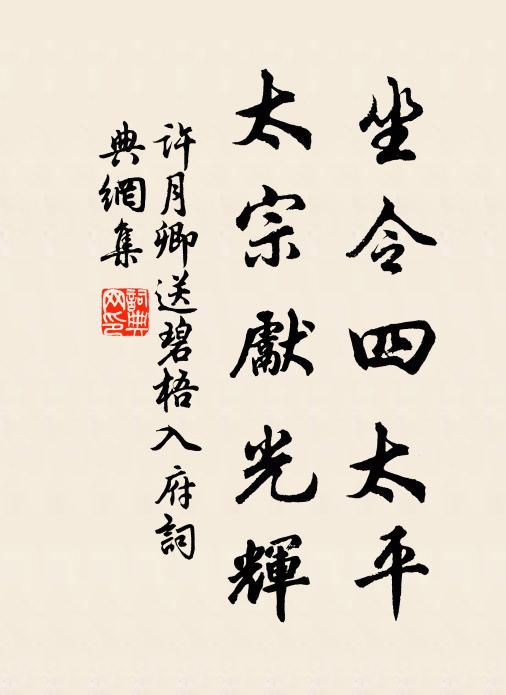 坐令四太平
太宗獻光輝
許月卿送碧梧入府詞
典網集
詞典網印